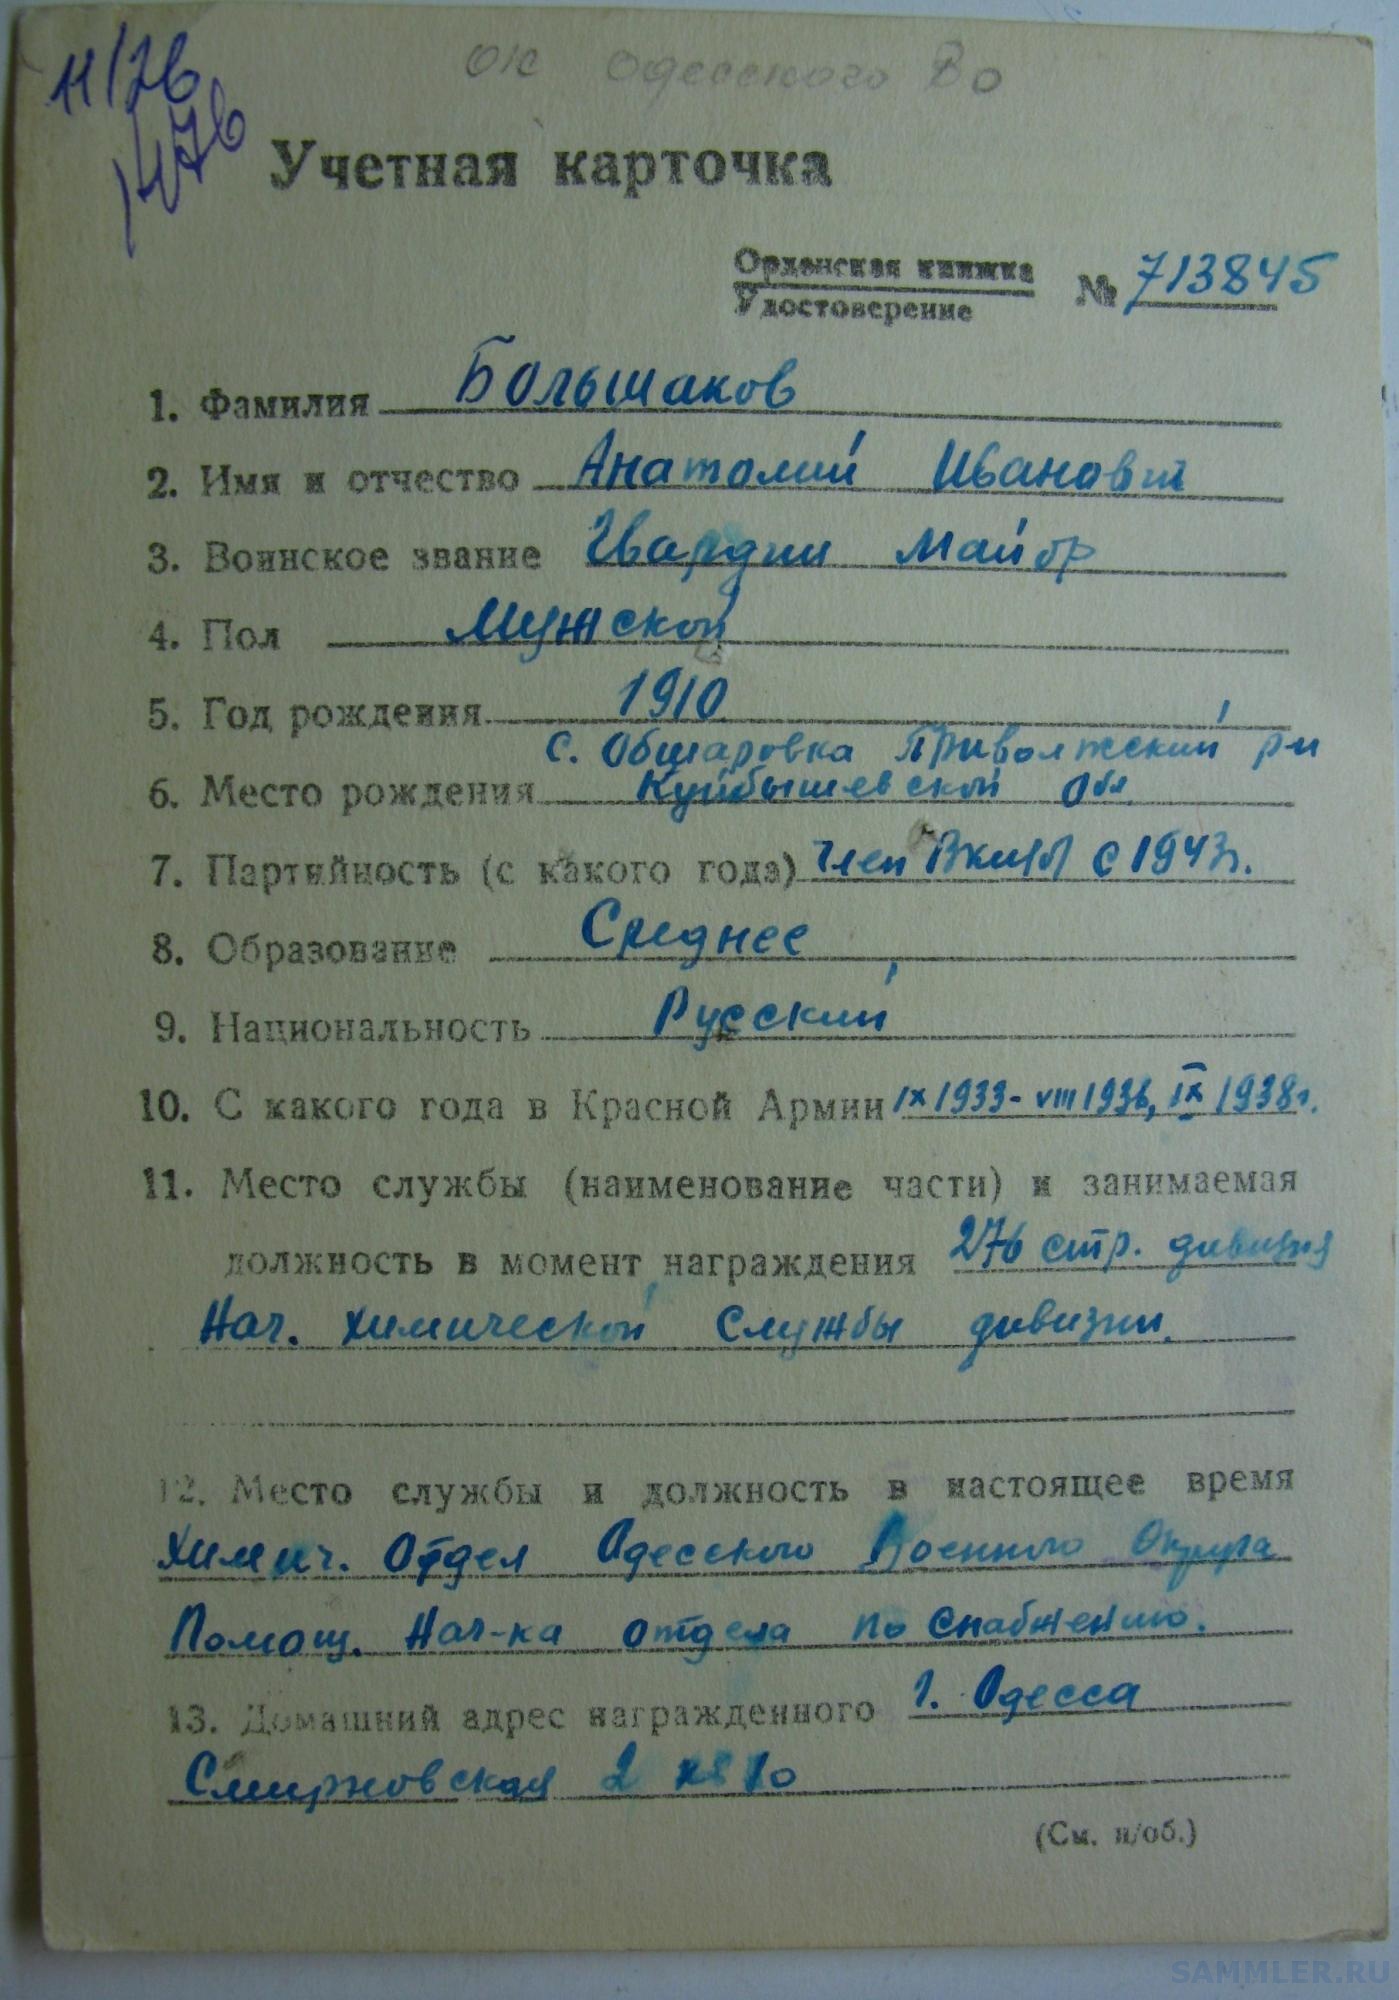 11/26
ОК Одесского ВО
Учетная карточка
Орденская книжка
Удостоверение
№ 713845
1. Фамилия Большаков
2. Имя и отчество Анатолий Иванович
3. Воинское звание Гвардии Майор
4. Пол Мужской
5. Год рождения 1910
с. Обшаровка Приволжский р-н
6. Место рождения Куйбышевской Обл.
7. Партийность (с какого года) член ВКП(б) с 1943г.
8. Образование Среднее
9. Национальность Русский
10. С какого года в Красной Армии IX 1933 - VIII 1936, IX 1938г.
11. Место службы (наименование части) и занимаемая
должность в момент награждения 276 стр. дивизия
Нач. химической Службы дивизии.
12. Место службы и должность в настоящее время
Химич. Отдел Одесского Военного Округа
Помощ. Нач-ка отдела по снабжению.
13. Домашний адрес награжденного г. Одесса
Смирновская 2 кв 10
(См. н/об.)
SAMMLER.RU